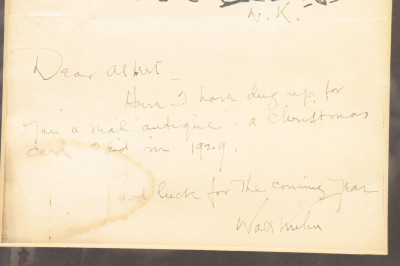 W.K.
Dear Albert _
Here I have dug up for
you a real "antique" - a Christmas
card I did in 1929.
Good luck for the coming year
Walt Kuhn